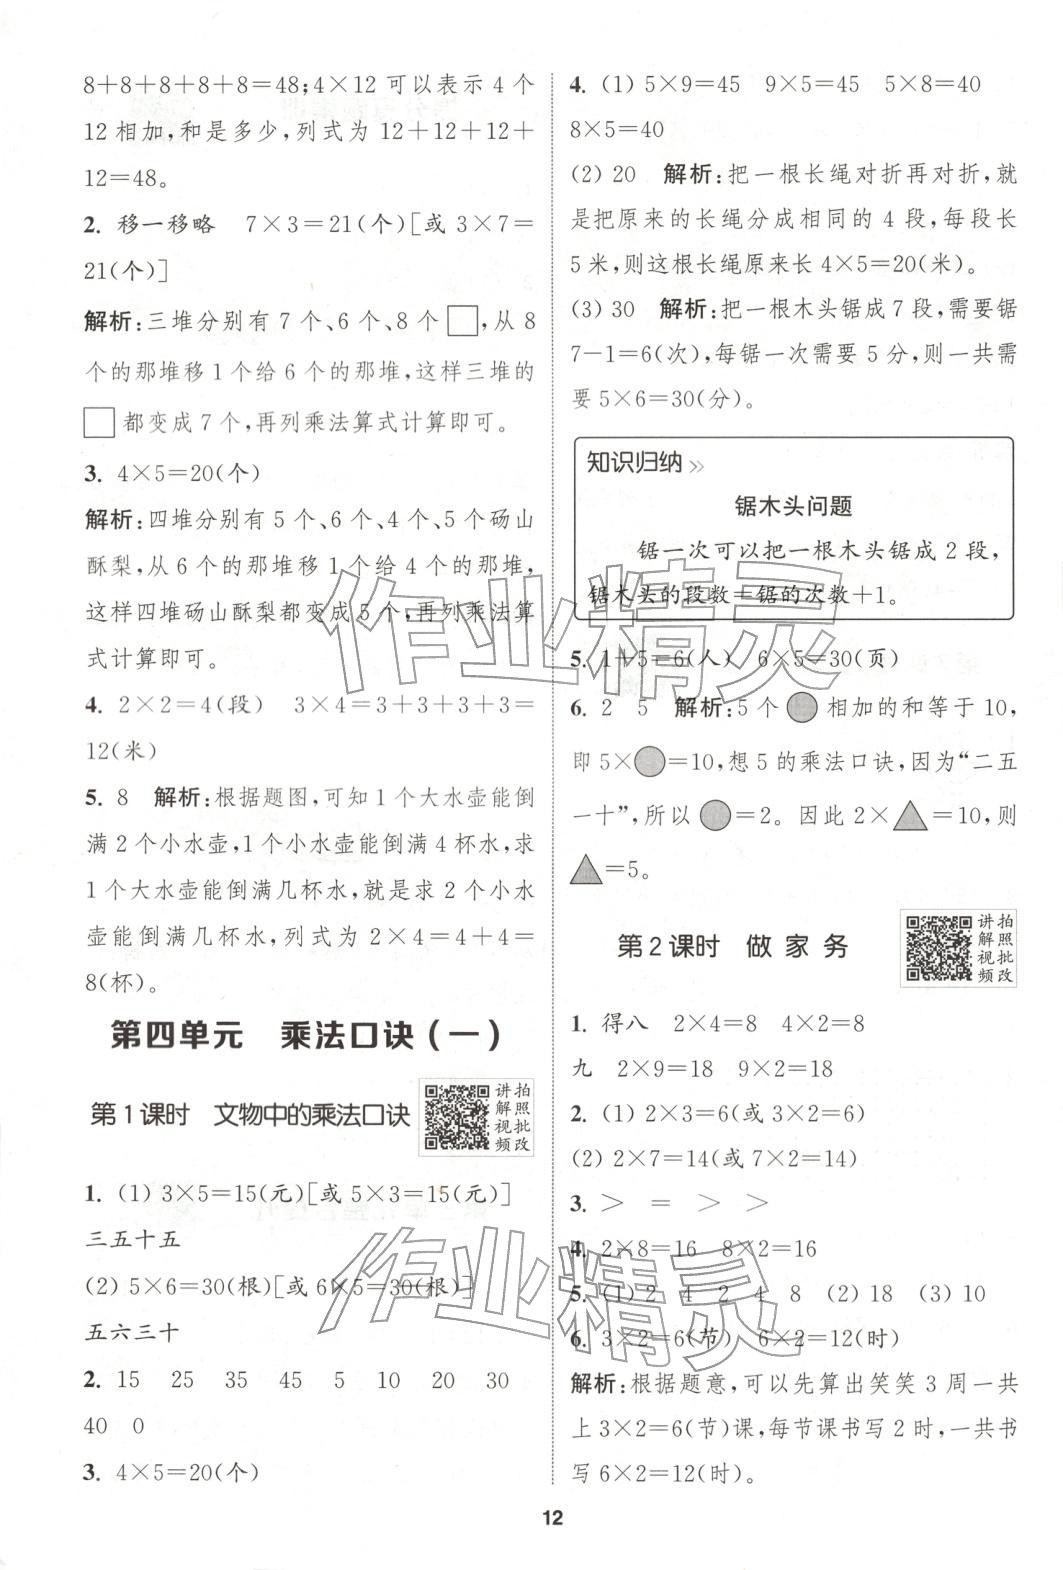 8+8+8+8+8=48;4×12可以表示4个
12相加,和是多少,列式为12+12+12+
12=48。
2. 移一移略 7×3=21(个)[或3×7=
21(个)]
解析:三堆分别有7个、6个、8个□,从8
个的那堆移1个给6个的那堆,这样三堆的
□都变成7个,再列乘法算式计算即可。
3. 4×5=20(个)
解析:四堆分别有5个、6个、4个、5个砀山
酥梨,从6个的那堆移1个给4个的那堆,
这样四堆砀山酥梨都变成5个,再列乘法算
式计算即可。
4. 2×2=4(段) 3×4=3+3+3+3=
12(米)
5. 8 解析:根据题图,可知1个大水壶能倒
满2个小水壶,1个小水壶能倒满4杯水,求
1个大水壶能倒满几杯水,就是求2个小水
壶能倒满几杯水,列式为2×4=4+4=
8(杯)。
第四单元 乘法口诀(一)
第1课时 文物中的乘法口诀
讲拍
解照
视批
频改
1. (1) 3×5=15(元)[或5×3=15(元)]
三五十五
(2) 5×6=30(根)[或6×5=30(根)]
五六三十
2. 15 25 35 45 5 10 20 30
40 0
3. 4×5=20(个)
4. (1) 5×9=45 9×5=45 5×8=40
8×5=40
(2) 20 解析:把一根长绳对折再对折,就
是把原来的长绳分成相同的4段,每段长
5米,则这根长绳原来长4×5=20(米)。
(3) 30 解析:把一根木头锯成7段,需要锯
7-1=6(次),每锯一次需要5分,则一共需
要5×6=30(分)。
知识归纳»
锯木头问题
锯一次可以把一根木头锯成2段,
锯木头的段数=锯的次数+1。
5. 1+5=6(人) 6×5=30(页)
6. 2 5 解析:5个●相加的和等于10,
即5×●=10,想5的乘法口诀,因为“二五
一十”,所以●=2。因此2×▲=10,则
▲=5。
第2课时 做家务
讲拍
解照
视批
频改
1. 得八 2×4=8 4×2=8
九 2×9=18 9×2=18
2. (1) 2×3=6(或3×2=6)
(2) 2×7=14(或7×2=14)
3. > = > >
4. 2×8=16 8×2=16
5. (1) 2 4 2 4 8 (2) 18 (3) 10
6. 3×2=6(节) 6×2=12(时)
解析:根据题意,可以先算出笑笑3周一共
上3×2=6(节)课,每节课书写2时,一共书
写6×2=12(时)。
12
作业精灵
作业精灵